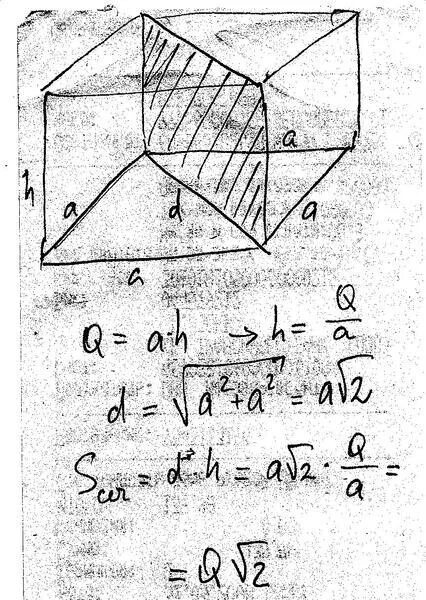 h
a
d
a
a
a
Q = a·h → h = Q/a
d = √(a²+a²) = a√2
Sсеч = d·h = a√2 · Q/a =
= Q√2